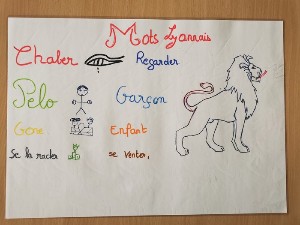 Mots Lyonnais
Chaber Regarder
Pelo Garçon
Gone Enfant
Se la racler se venter.